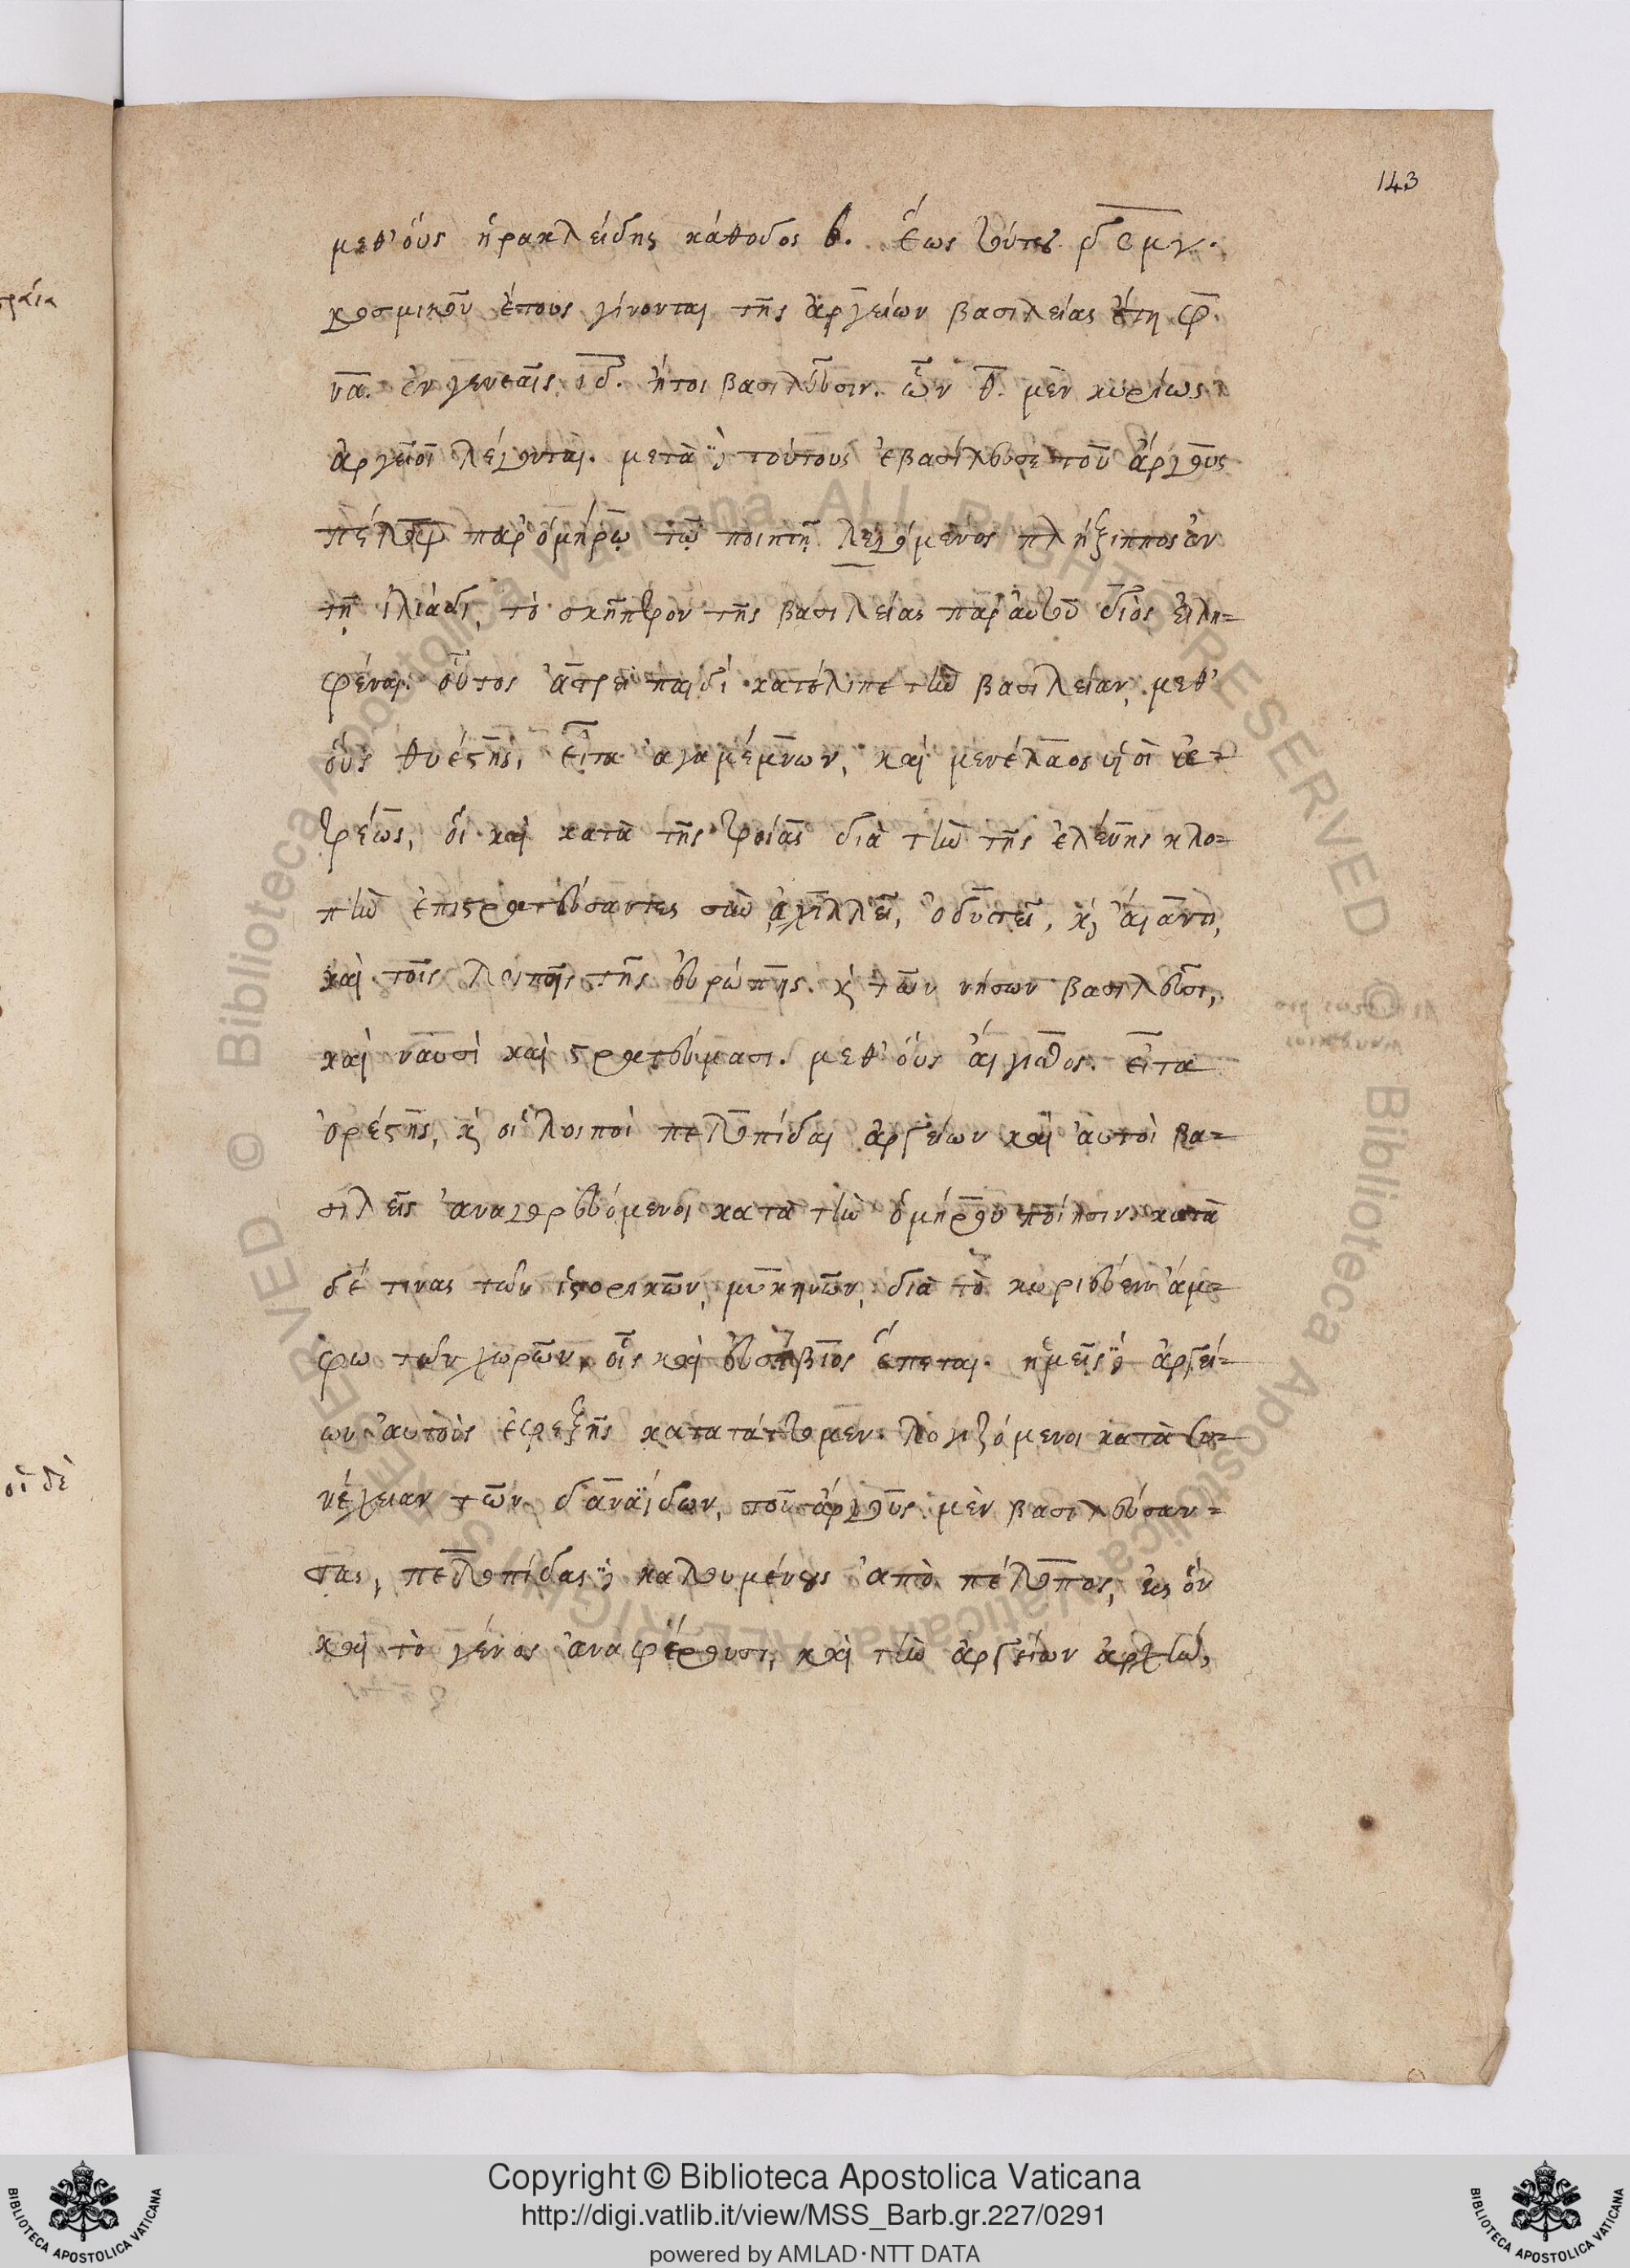 143
μεθ' οὓς ἡρακλείδης κάθοδος β. ἕως τούτου δσμγ.
κοσμικοῦ ἔτους γίνονται τῆς ἀργείων βασιλείας ἔτη φ.
να. ἐν γενεαῖς ιδ. ἤτοι βασιλεῦσιν. ὧν θ. μὲν κυρίως
ἀργεῖοι λέγονται. μετὰ δὲ τούτους ἐβασίλευσε τοῦ ἄργους
πέλοψ παρ' ὁμήρῳ τῷ ποιητῇ λεγόμενος πλήξιππος ἐν
τῇ ἰλιάδι, τὸ σκῆπτρον τῆς βασιλείας παρ' αὐτοῦ διὸς εἰλη=
φέναι. οὗτος ἀτρεῖ παιδὶ κατέλιπε τὴν βασιλείαν, μεθ'
οὓς θυέστης, εἶτα ἀγαμέμνων, καὶ μενέλαος υἱοὶ ἀ=
τρέως, οἳ καὶ κατὰ τῆς τροίας διὰ τὴν τῆς ἑλένης κλο=
πὴν ἐπιστρατεύσαντες σὺν ἀχιλλεῖ, ὀδυσεῖ, κὶ αἴαντι,
καὶ τοῖς λοιποῖς τῆς εὐρώπης κὶ τῶν νήσων βασιλεῦσι,
καὶ ναυσὶ καὶ στρατεύμασι. μεθ' οὓς αἴγισθος. εἶτα
ὀρέστης, κὶ οἱ λοιποὶ πελοπίδαι ἀργείων καὶ αὐτοὶ βα=
σιλεῖς ἀναγορευόμενοι κατὰ τὴν ὁμήρου ποίησιν. κατὰ
δέ τινας τῶν ἱστορικῶν, μυκηνῶν, διὰ τὸ κυριεύειν ἄμ=
φω τῶν χωρῶν, οἷς καὶ εὐσέβιος ἕπεται. ἡμεῖς δὲ ἀργεί=
ων αὐτοὺς ἐφεξῆς κατατάττομεν. λογιζόμενοι κατὰ συ=
νέχειαν τῶν δαναΐδων, τοῦ ἄργους μὲν βασιλεύσαν=
τας, πελοπίδας δὲ καλουμένους ἀπὸ πέλοπος, εἰς ὃν
καὶ τὸ γένος ἀναφέρουσι, καὶ τὴν ἀργείων ἀρχὴν,
οἱ δὲ
Copyright © Biblioteca Apostolica Vaticana
http://digi.vatlib.it/view/MSS_Barb.gr.227/0291
powered by AMLAD·NTT DATA
BIBLIOTECA APOSTOLICA VATICANA
BIBLIOTECA APOSTOLICA VATICANA